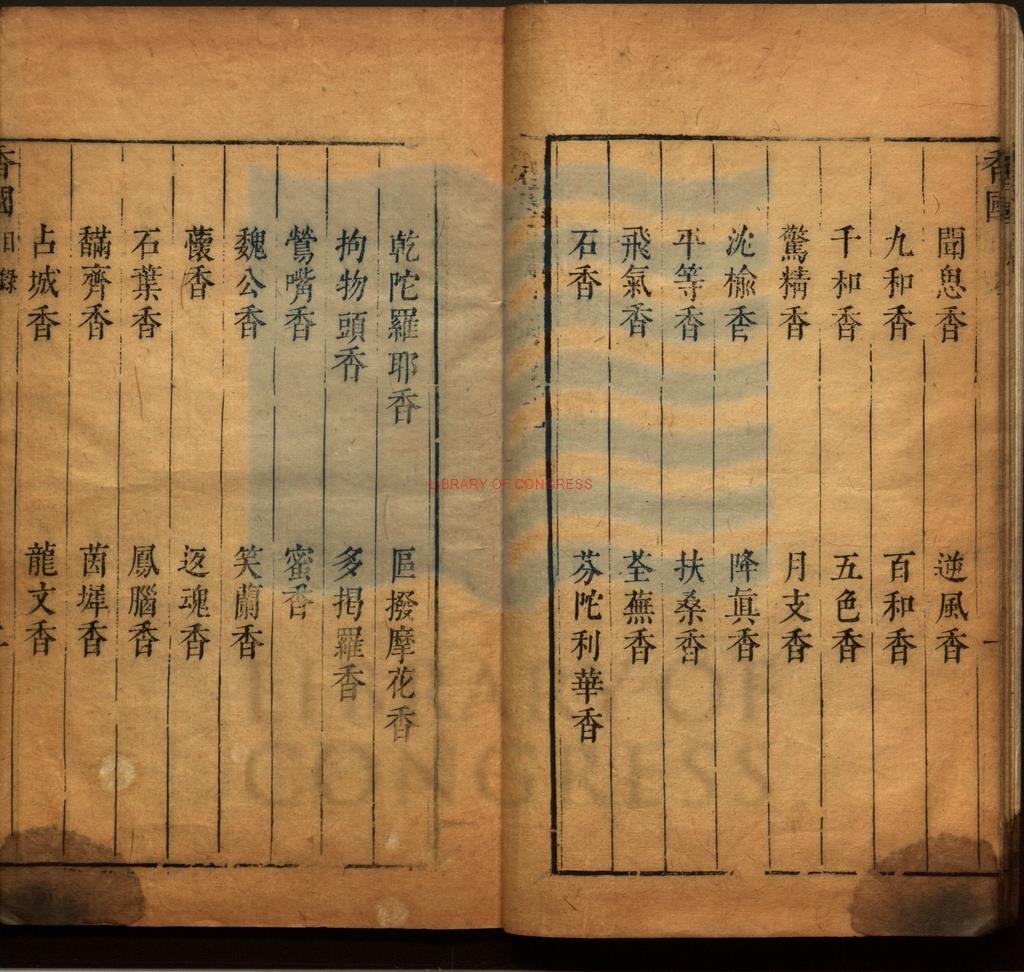 香國
聞思香 逆風香
九和香 百和香
千和香 五色香
驚精香 月支香
沈榆香 降眞香
平等香 扶桑香
飛氣香 荃蕪香
石香 芬陀利華香
乾陀羅耶香 區撥摩花香
拘物頭香 多揭羅香
鶯嘴香 蜜香
魏公香 笑蘭香
蘹香 返魂香
石葉香 鳳腦香
𪗋齊香 茵墀香
占城香 龍文香
香國 目錄
LIBRARY OF CONGRESS